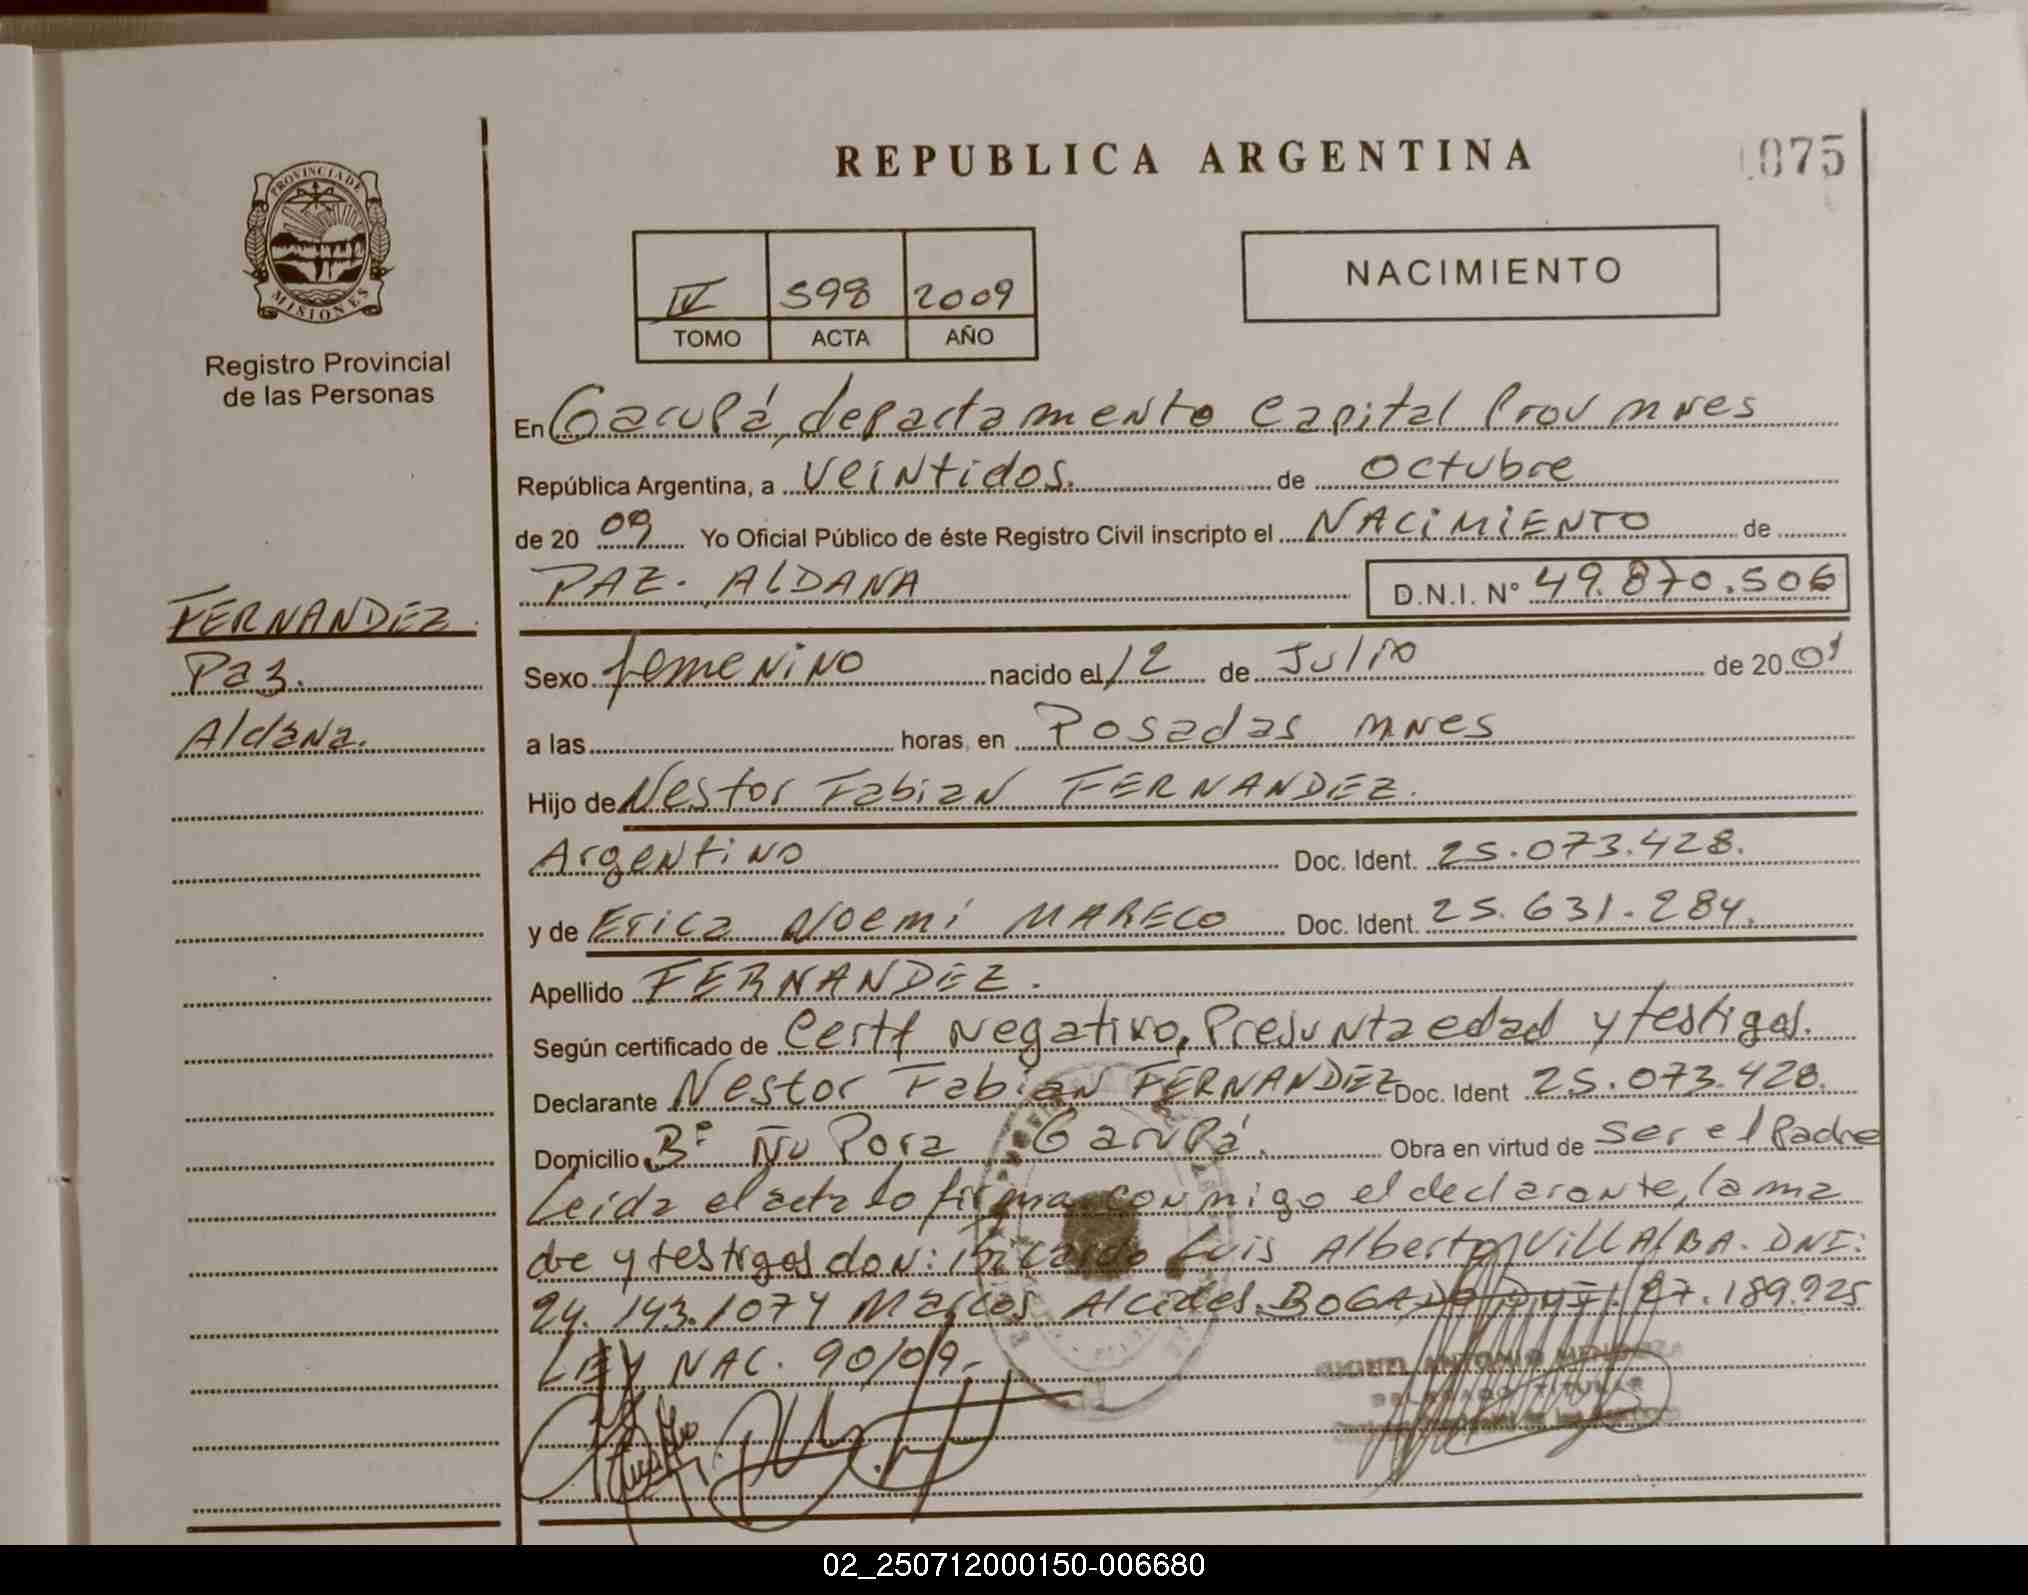 REPUBLICA ARGENTINA
075
PROVINCIA DE
MISIONES
Registro Provincial
de las Personas
IV 598 2009
TOMO ACTA AÑO
NACIMIENTO
En Garupá, departamento Capital Prov mnes
República Argentina, a veintidos. de octubre
de 20 09 Yo Oficial Público de éste Registro Civil inscripto el NACIMIENTO de
PAZ. ALDANA D.N.I. N° 49.870.506
FERNANDEZ.
Paz.
Aldana.
Sexo femenino nacido el 12 de Julio de 20 01
a las horas, en Posadas mnes
Hijo de Nestor Fabian FERNANDEZ.
Argentino Doc. Ident. 25.073.428.
y de Erica Noemí MARECO Doc. Ident. 25.631.284.
Apellido FERNANDEZ.
Según certificado de Certf Negativo, Presunta edad y testigos.
Declarante Nestor Fabian FERNANDEZ Doc. Ident 25.073.428.
Domicilio B° Ñu Pora Garupá. Obra en virtud de ser el Padre
Leida el acta lo firma conmigo el declarante, la ma
dre y testigos don: Ricardo Luis Alberto VILLALBA. DNI:
24.143.107 y Marcos Alcides BOGADO DNI. 27.189.925
LEY NAC. 90/09.-
MIGUEL ANTONIO MENDOZA
DELEGADO TITULAR
02_250712000150-006680